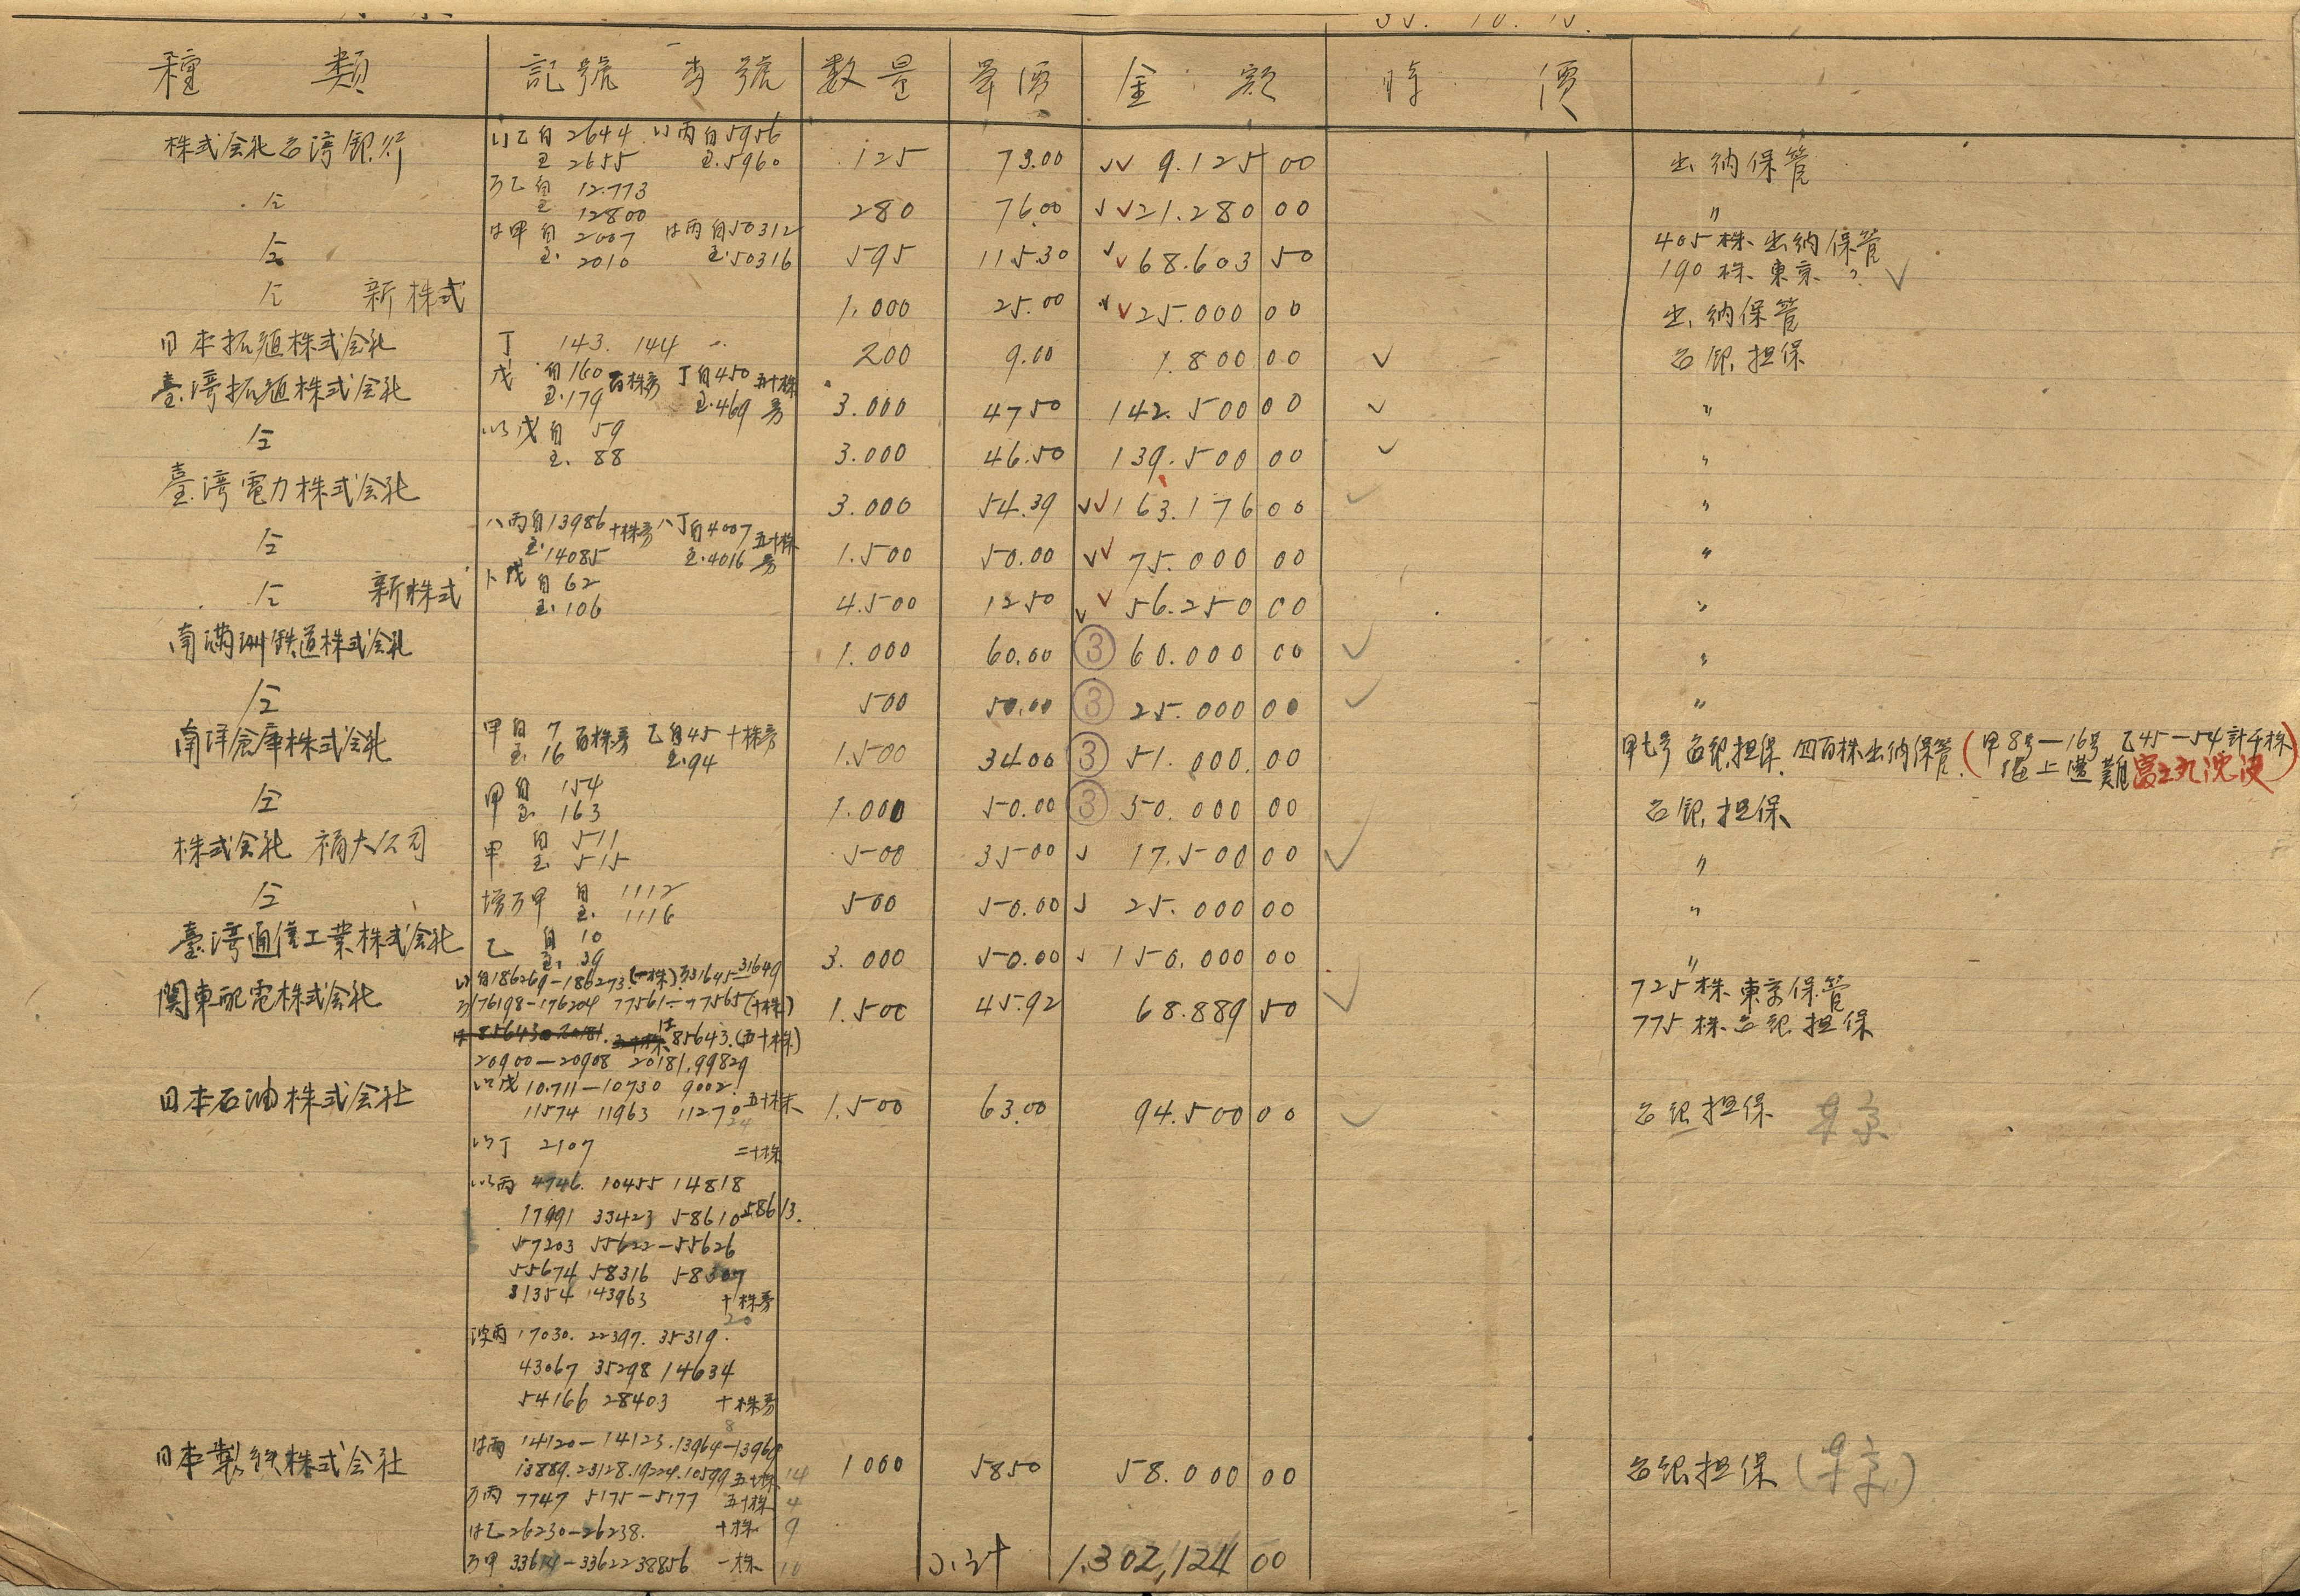 種類 記號 番號 數量 單價 金額 時價
株式会社台湾銀行 い乙自2644 い丙自5956 125 73.00 9.125 00 出納保管
至2655 至.5960
仝 ろ乙自12.773 280 76.00 21.280 00 〃
至12800
仝 は甲自2007 は丙自50312 595 115.30 68.603 50 405株出納保管
至.2010 至.50316 190株東京?
仝 新株式 1.000 25.00 25.000 00 出納保管
日本拓殖株式会社 丁 143. 144 200 9.00 1.800 00 台銀担保
臺湾拓殖株式会社 戊 自160 百株券 丁自450 五十株券 3.000 47 50 142.500 00 〃
至.179 至.469
仝 い戊自 59 3.000 46.50 139.500 00 〃
至. 88
臺湾電力株式会社 3.000 54.39 163.176 00 〃
仝 ハ丙自13986 十株券 ハ丁自4007 五十株券 1.500 50.00 75.000 00 〃
至.14085 至.4016
仝 新株式 ト戊自62 4.500 12 50 56.250 00 〃
至.106
南満洲鉄道株式会社 1.000 60.00 ③ 60.000 00 〃
仝 500 50.00 ③ 25.000 00 〃
南洋倉庫株式会社 甲自 7 百株券 乙自45 十株券 1.500 34.00 ③ 51.000.00 甲七号台銀担保.四百株出納保管.(甲8号—16号 乙45—54計千株
至.16 至.94 海上遭難富士丸沈没)
仝 甲自 154 1.000 50.00 ③ 50.000 00 台銀担保
至. 163
株式会社 福大公司 甲自 511 500 35 00 17.500 00 〃
至. 515
仝 増ろ甲自 1112 500 50.00 25.000 00 〃
至. 1116
臺湾通信工業株式会社 乙自 10 3.000 50.00 150.000 00 〃
至. 39
関東配電株式会社 い自186269-186273(一株)ろ31645-31649 1.500 45.92 68.889 50 725株東京保管
ろ176198-176204 77561-77565(十株) 775株台銀担保
は85643.(五十株)
20900—20908 20181.99829
日本石油株式会社 い戊10.711—10730 9002. 1.500 63.00 94.500 00 台銀担保 東京
11574 11963 11270 五十株
24
い丁 2107 二十株
い丙 4746. 10455 14818
17991 33423 58610 58613.
57203 55622-55626
55674 58316 58307
31354 143963 十株券
20
17030. 22397. 35319.
43067 35298 14634
54166 28403 十株券
8
日本製鉄株式会社 は丙 14120-14123.13964-13969 1000 58 50 58.000 00 台銀担保(東京)
13889.23128.19224.10599 五十株 14
ろ丙 7747 5175-5177 五十株 4
は乙26230-26238. 十株 9
ろ甲 33614-33622 38856 一株 10
小計 1.302,124 00